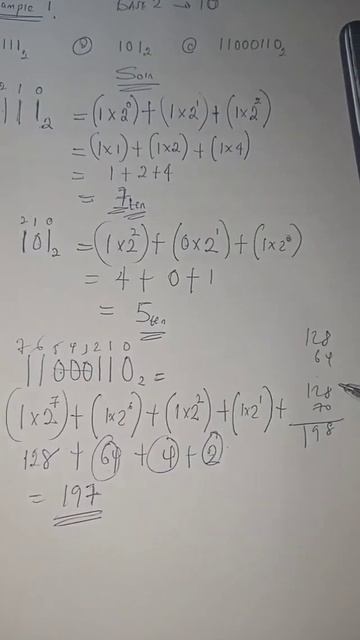 ample 1. BASE 2 → 10
111₂ (b) 101₂ (c) 11000110₂
Soln
2 1 0
111₂ = (1x2⁰)+(1x2¹)+(1x2²)
= (1x1)+(1x2)+(1x4)
= 1+2+4
= 7ten
2 1 0
101₂ = (1x2²)+(0x2¹)+(1x2⁰)
= 4+0+1
= 5ten
7 6 5 4 3 2 1 0
11000110₂ =
(1x2⁷)+(1x2⁶)+(1x2²)+(1x2¹)+
128 + 64 + 4 + 2
= 197
128
64
128
70
198